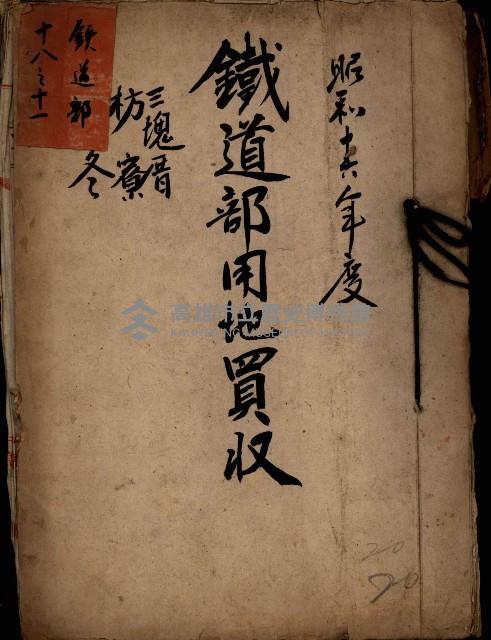 昭和十六年度
鐵道部用地買収
三塊厝
枋寮
冬
鉄道部
十八之十一
高雄市立歷史博物館
KAOHSIUNG MUSEUM OF HISTORY
20
20